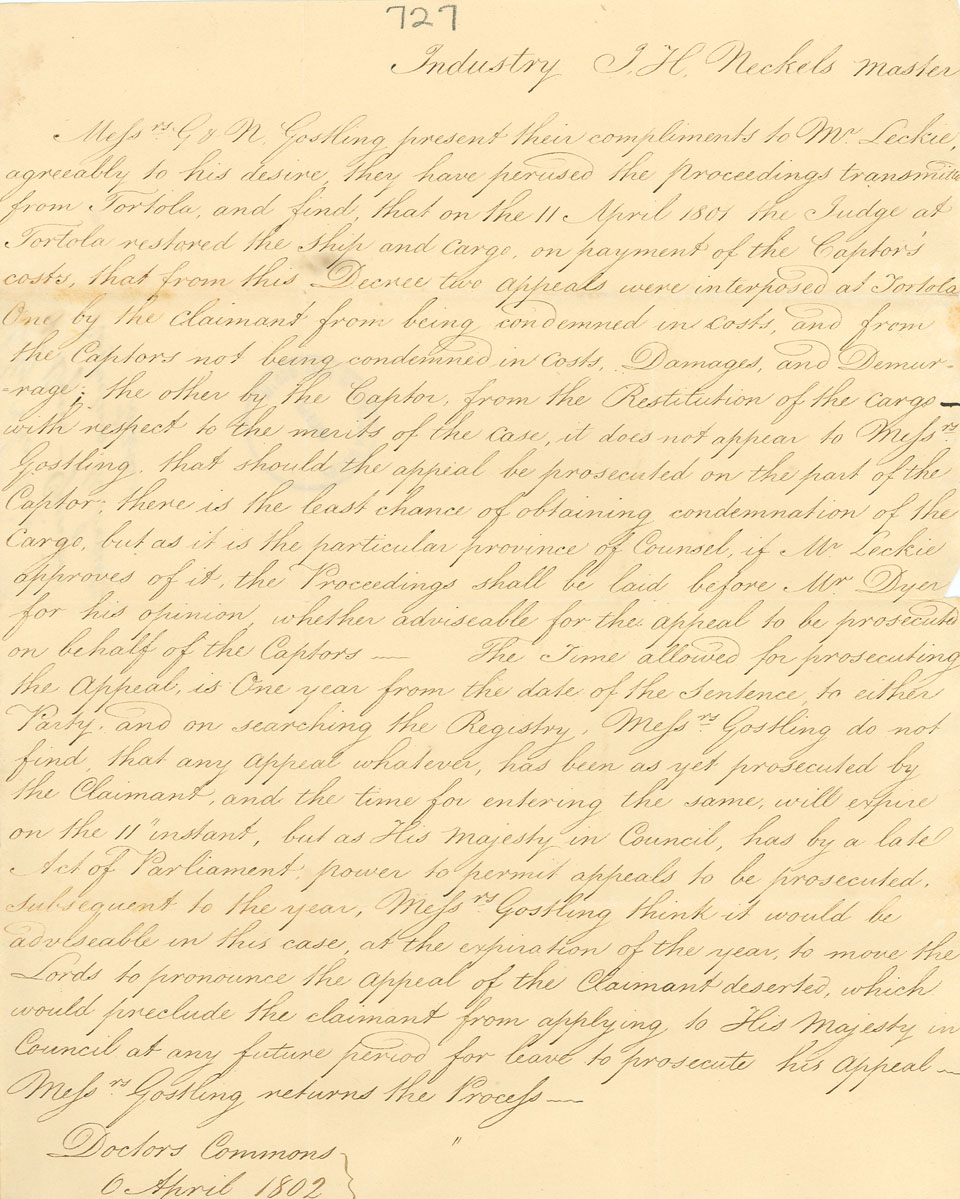 727
Industry J. H. Neckels master
Messrs. G & N. Gostling present their compliments to Mr. Leckie,
agreeably to his desire, they have perused the Proceedings
from Tortola, and find, that on the 11 April 1801 the Judge at
Tortola restored the ship and cargo, on payment of the Captor's
costs, that from this Decree two appeals were interposed at Tortola
One by the Claimant from being condemned in costs, and from
the Captors not being condemned in Costs, Damages, and Demur-
-rage; the other by the Captor, from the Restitution of the cargo—
with respect to the merits of the case, it does not appear to Messrs.
Gostling, that should the appeal be prosecuted on the part of the
Captor, there is the least chance of obtaining condemnation of the
Cargo, but as it is the particular province of Counsel, if Mr Leckie
approves of it, the Proceedings shall be laid before Mr. Dyer
for his opinion, whether adviseable for the appeal to be prosecuted
on behalf of the Captors — The Time allowed for prosecuting
the Appeal, is One year from the date of the Sentence, to either
Party, and on searching the Registry, Messrs. Gostling do not
find, that any appeal whatever, has been as yet prosecuted by
the Claimant, and the time for entering the same, will expire
on the 11" instant, but as His Majesty in Council, has by a late
Act of Parliament, power to permit appeals to be prosecuted,
subsequent to the year, Messrs Gostling think it would be
adviseable in this case, at the expiration of the year, to move the
Lords to pronounce the appeal of the Claimant deserted, which
would preclude the claimant from applying to His Majesty in
Council at any future period for leave to prosecute his appeal—
Messrs Gostling returns the Process—
Doctors Commons
6 April 1802